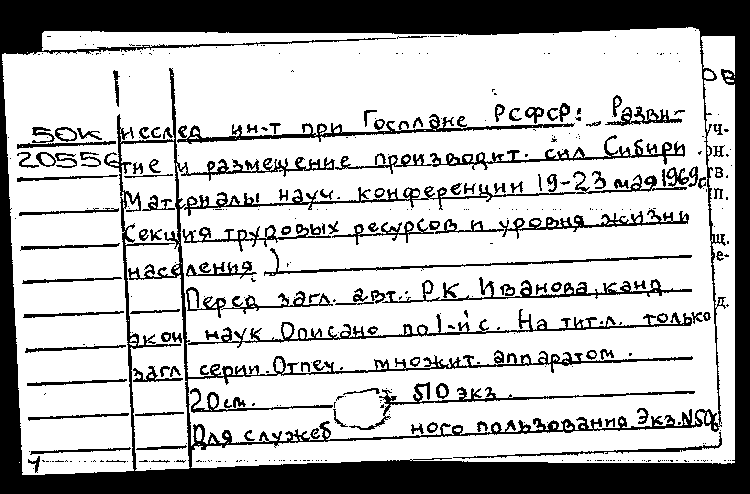 50К исслед ин-т при Госплане РСФСР: Разви-
20556 тие и размещение производит. сил Сибири.
Материалы науч. конференции 19-23 мая 1969г
Секция трудовых ресурсов и уровня жизни
населения ).
Перед загл. авт.: Р.К. Иванова, канд.
экон. наук. Описано по 1-й с. На тит. л. только
загл серии. Отпеч. множит. аппаратом.
20 см. 510 экз.
Для служебного пользования Экз. N 506